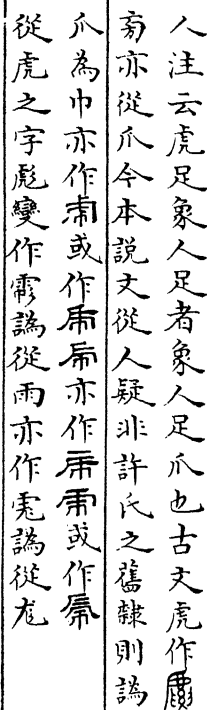 人注云虎足象人足者象人足爪也古文虎作
亦從爪今本說文從人疑非許氏之舊隸則譌
爪為巾亦作或作亦作或作
從虎之字彪變作譌從雨亦作譌從尨